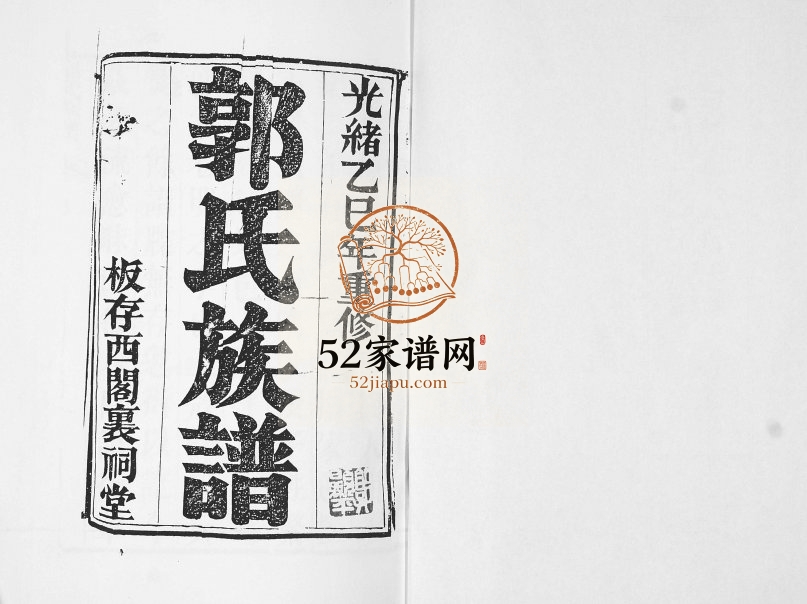 光緒乙巳年重修
郭氏族譜
板存西閣裏祠堂
52家谱网
52jiapu.com